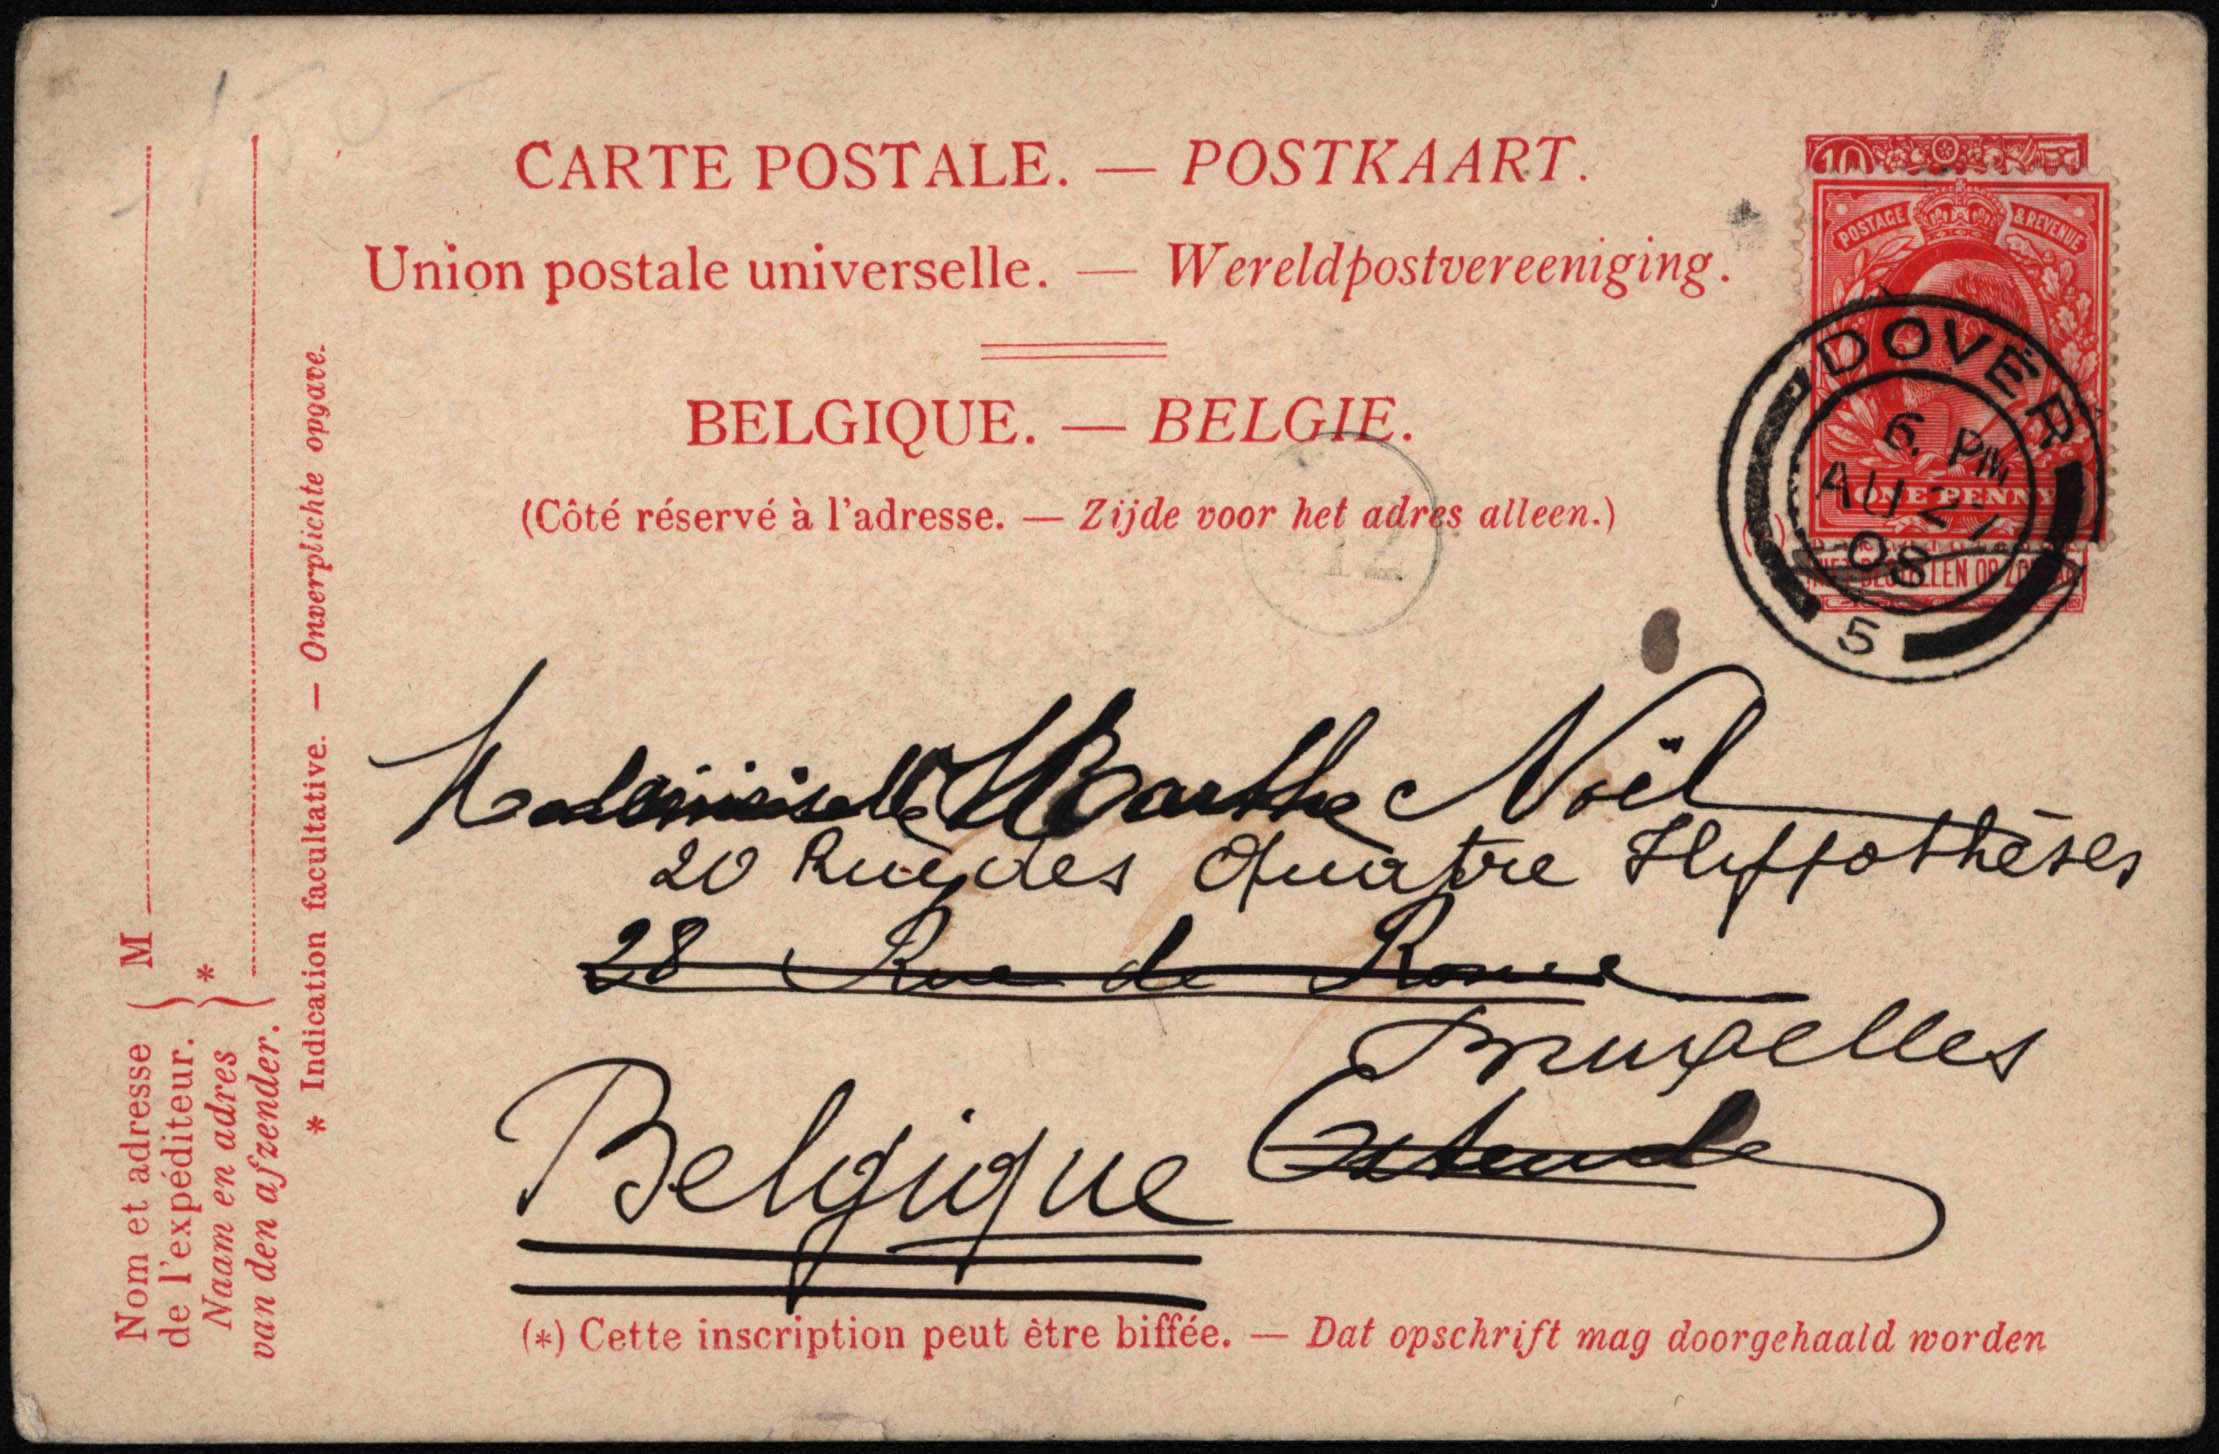 150-
CARTE POSTALE. — POSTKAART.
Union postale universelle. — Wereldpostvereeniging.
BELGIQUE. — BELGIE.
(Côté réservé à l'adresse. — Zijde voor het adres alleen.)
10
POSTAGE & REVENUE
ONE PENNY
DOVER
6. PM
AU 27
08
5
Mademoiselle Marthe Noël
20 Rue des Quatre Hyppothèses
28 Rue de Rome
Bruxelles
Ostende
Belgique
(*) Cette inscription peut être biffée. — Dat opschrift mag doorgehaald worden
Nom et adresse de l'expéditeur.
Naam en adres van den afzender.
M
*
* Indication facultative. — Onverplichte opgave.